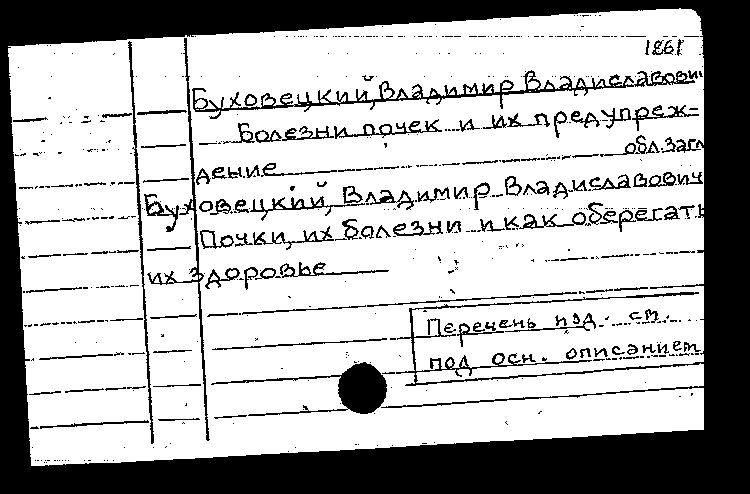 1861
Буховецкий, Владимир Владиславович
Болезни почек и их предупреж-
дение
обл. загл
Буховецкий, Владимир Владиславович
Почки, их болезни и как оберегать
их здоровье
Перечень под. ст.
под осн. описанием